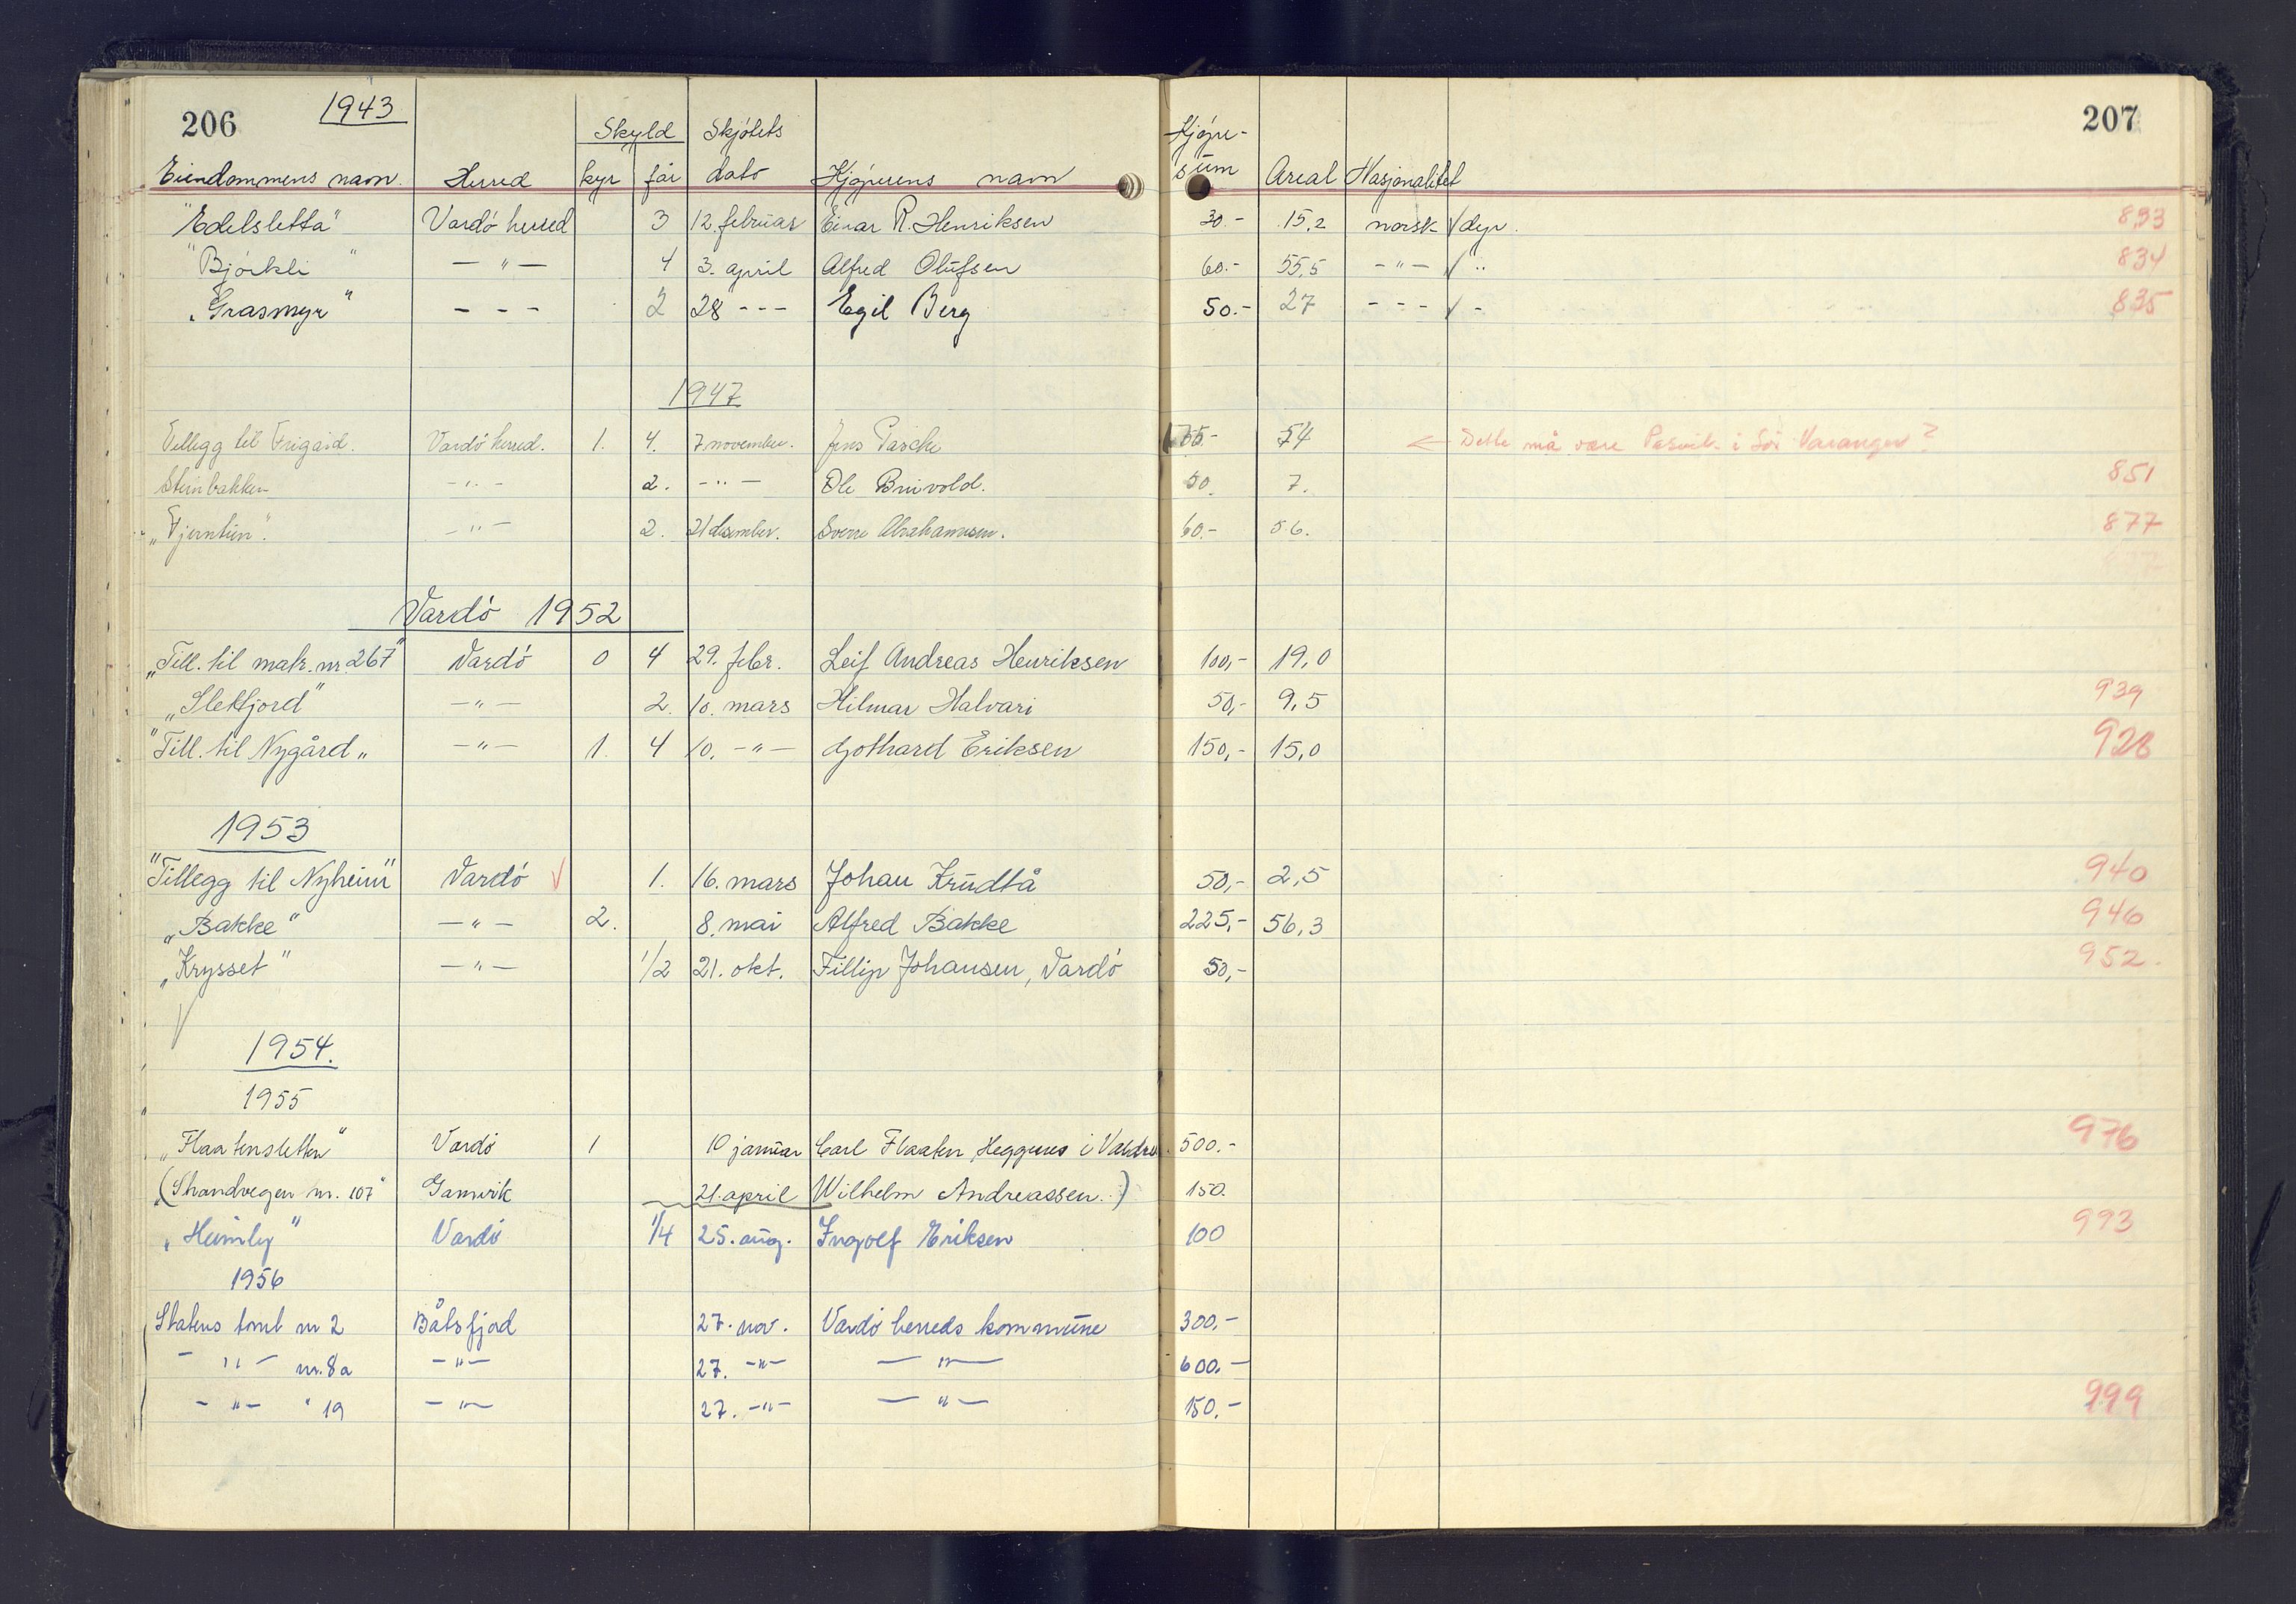 206 1943 207
Skyld Skjöets Kjøpe-
Eiendommens navn. Herred kyr får dato Kjøperens navn sum Areal Nasjonalitet
"Edelsletta" Vardö herred 3 12. februar Einar R. Henriksen 30.- 15,2 norsk √ dyr. 833
"Björkli" — " — 4 3. april Alfred Olufsen 60.- 55,5 - " - √ " 834
"Grasmyr" - - - 2 28 - - - Egil Berg 50.- 27 - - - √ - 835
1947
Tillegg til Frigård. Vardö herred. 1. 4. 7 november. Jens Pasche 54 ← Dette må være Pasvik i Sör Varanger?
Steinbakken - " - 2. - " - Ole Bruvold. 50. 7. 851
"Fjerntun". - " - 2. 21 desember. Sverre Abrahamsen. 60.- 5.6. 877
Vardö 1952
"Till. til matr. nr. 267" Vardö 0 4 29. febr. Leif Andreas Henriksen 100,- 19,0
"Slettfjord" — " — 2. 10. mars Hilmar Halvari 50,- 9,5 939
"Till. til Nygård" — " — 1. 4 10. — " — Gothard Eriksen 150,- 15,0 928
1953
"Tillegg til Nyheim" Vardö √ 1. 16. mars Johan Krudtå 50,- 2,5 940
"Bakke" — " — 2. 8. mai Alfred Bakke 225,- 56,3 946
"Krysset" — " — 1/2 21. okt. Fillip Johansen, Vardö 50,- 952.
√
1954.
1955
"Flaatensletten" Vardö 1 10 januar Carl Flaaten, Heggenes i Valdres 500.- 976
("Strandvegen nr. 107" Gamvik 21. april Wilhelm Andreassen.) 150.
"Heimly" Vardö 1/4 25. aug. Ingolf Eriksen 100 993
1956
Statens tomt nr 2 Båtsfjord 27. nov. Vardö herreds kommune 300,-
- " - nr. 8a - " - 27. - " - — " — 600.-
- " - " 19 - " - 27. - " - — " — 150.- 999